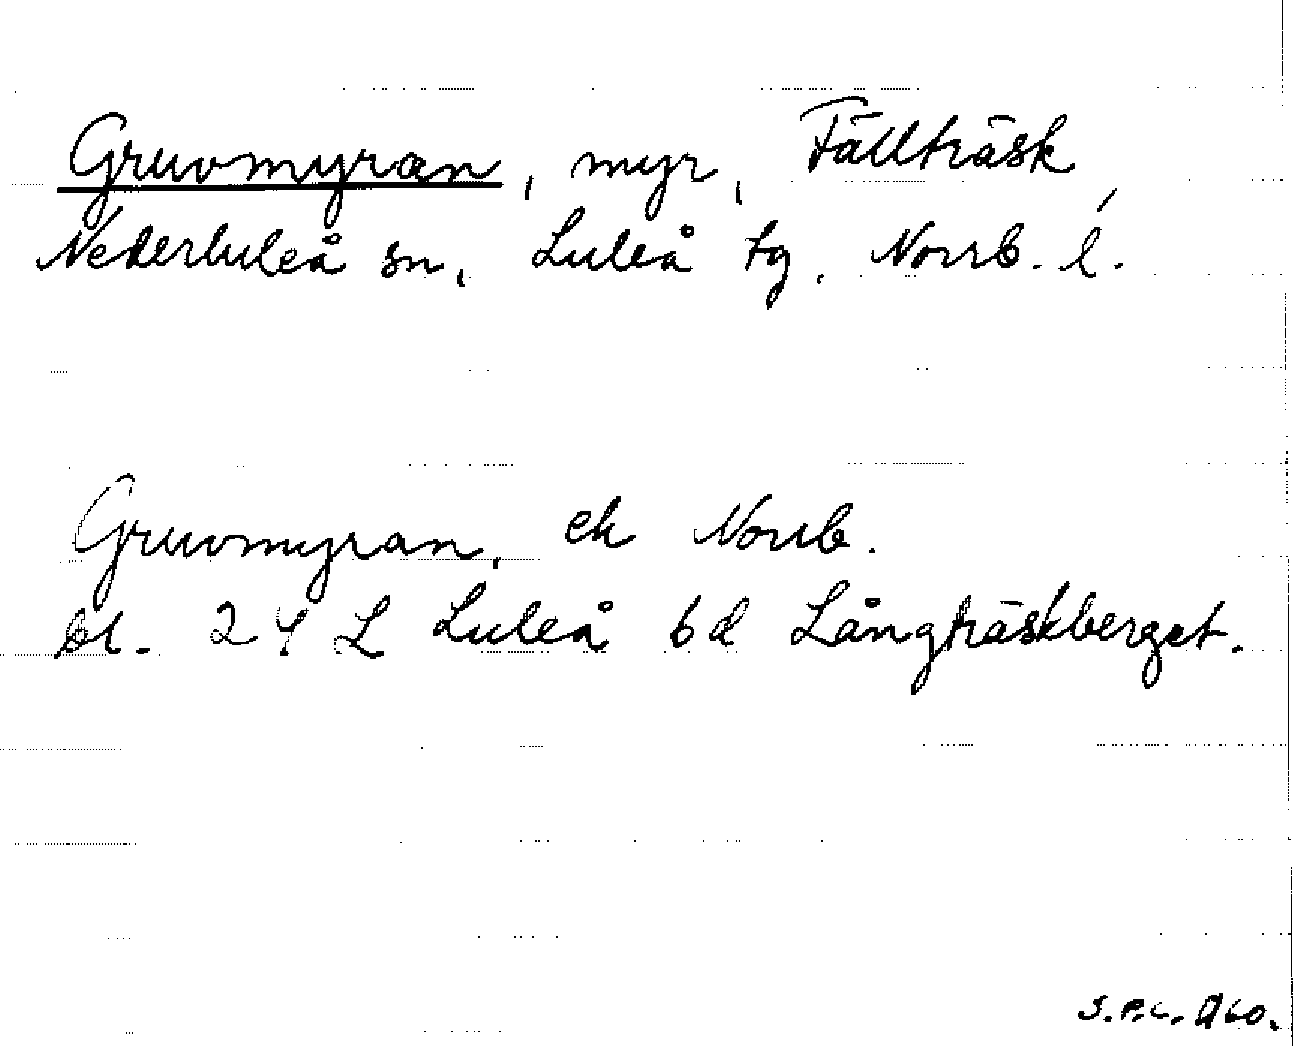 Gruvmyran, myr, Fällträsk,
Nederluleå sn, Luleå tg. Norrb. l.
Gruvmyran, ek Norrb.
bl. 24 L Luleå 6d Långträskberget.